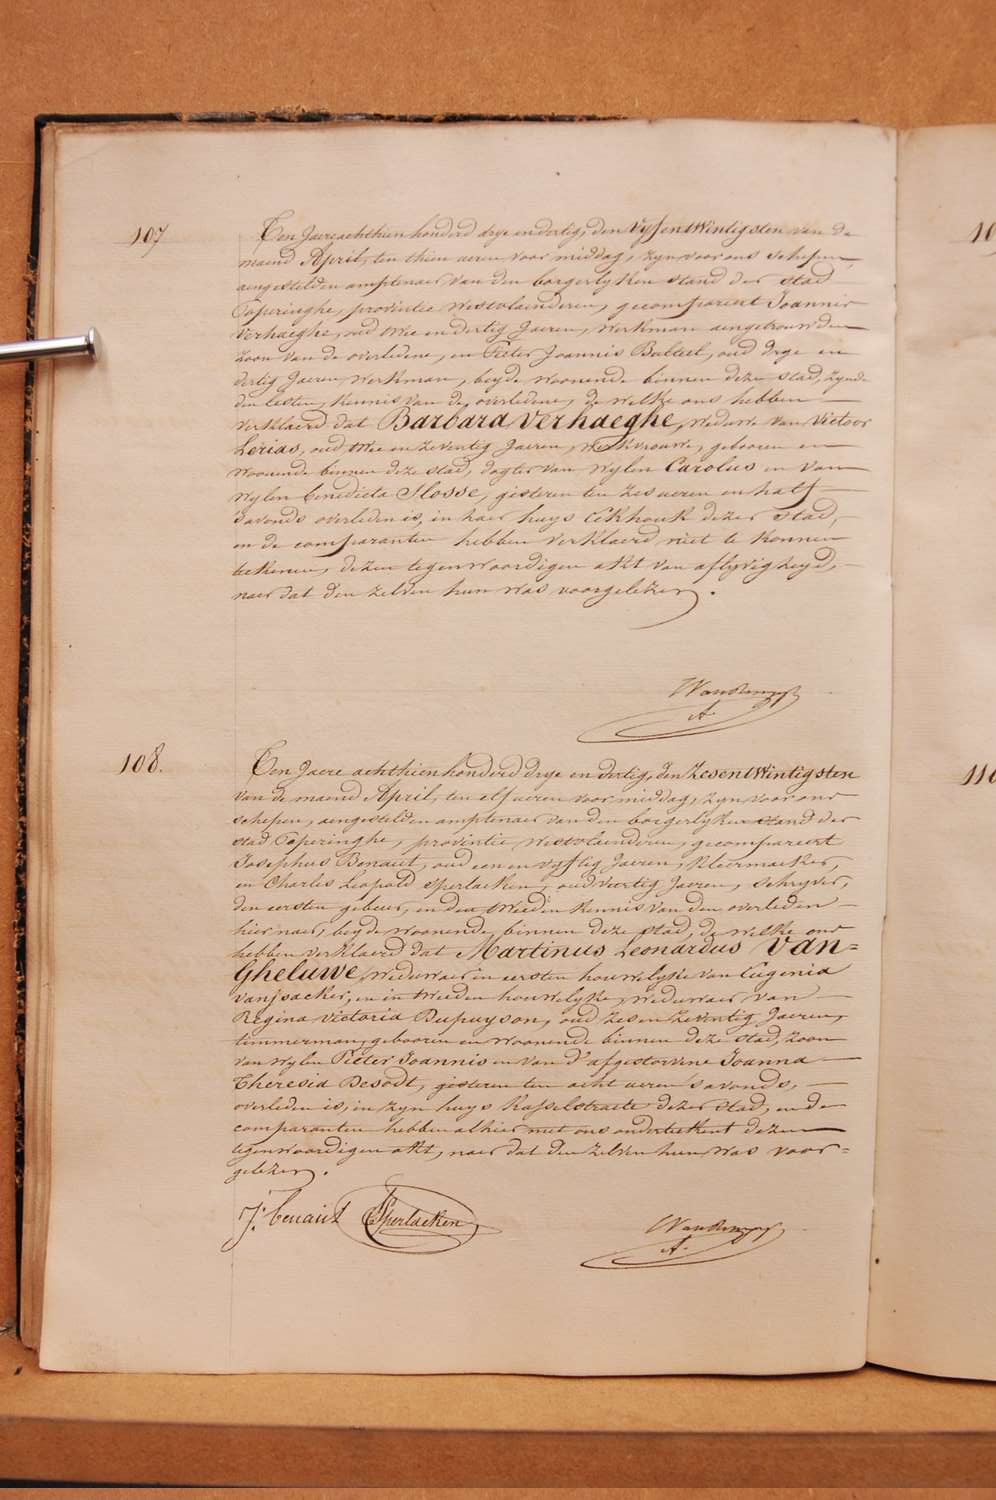 107
Ten Jaere achthien honderd drye en dertig, den Vyfentwintigsten van de
maend April, ten thien ueren voor middag, zyn voor ons schepen,
aengestelden amptenaer van den borgerlyken stand der stad
Poperinghe, provintie Westvlaenderen, gecompareert Joannis
Verhaeghe, oud twee en dertig Jaeren, werkman aengetrouwden
zoon van de overledene, en Pieter Joannis Balteel, oud drye en
dertig Jaeren, werkman, beyde woonende binnen deze stad, zynde
den lesten, kennis van de overledene, de welke ons hebben
verklaerd dat Barbara Verhaeghe, weduwe van Victoor
Lerias, oud twee en zeventig Jaeren, werkvrouwe, geboren en
woonende binnen deze stad, dogter van wylen Carolus en van
wylen Benedicta Slosse, gisteren ten zes ueren en half
s'avonds overleden is, in haer huys Eekhouk dezer stad,
en de comparanten hebben verklaerd niet te konnen
teekenen, dezen tegenwoordigen akt van aflyvigheyd,
naer dat den zelven hun was voorgelezen.
A.
108.
Ten Jaere achthien honderd drye en dertig, den Zesentwintigsten
van de maend April, ten elf ueren voor middag, zyn voor ons
schepen, aengestelden amptenaer van den borgerlyken stand der
stad Poperinghe, provintie Westvlaenderen, gecompareert
Josephus Benaut, oud een en vyftig Jaeren, kleermaeker,
en Charles Leopold Sperlaeken, oud veertig Jaeren, schryver,
den eersten gebuer, en den tweeden kennis van den overleden
hier naer, beyde woonende binnen deze stad, de welke ons
hebben verklaerd dat Martinus Leonardus Van=
Gheluwe, weduwaer in eersten houwelyke van Eugenia
Vanjsacker, en in tweeden houwelyke, weduwaer van
Regina Victoria Dupuyson, oud zes en zeventig Jaeren,
timmerman, gebooren en woonende binnen deze stad, zoon
van wylen Pieter Joannis en van d'afgestorvene Joanna
Theresia Desodt, gisteren ten acht ueren s'avonds,
overleden is, in zyn huys Kasselstraete dezer stad, en de
comparanten hebben alhier met ons onderteekent dezen
tegenwoordigen akt, naer dat den zelven hun was voor=
gelezen.
J. benaut Sperlaeken
A.
110